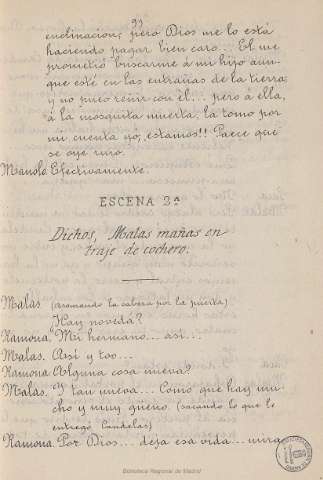 99
enclinacion; pero Dios me lo está
haciendo pagar bien caro... El me
prometió buscarme á mi hijo aun-
que esté en las entrañas de la tierra;
y no pueo reñir con él... pero á ella,
á la mosquita muerta, la tomo por
mi cuenta yó, estamos!! Paece que
se oye ruio.
Manolo Efectivamente.
ESCENA 3ª
Dichos, Malas mañas en
traje de cochero.
Malas. (asomando la cabeza por la puerta)
Hay noveda?
Ramona. Mi hermano... asi...
Malas. Asi y too...
Ramona Alguna cosa nueva?
Malas. Y tan nueva... Como que hay mu-
cho y muy güeno. (sacando lo que le
entregó Candelas)
Ramona. Por Dios... deja esa vida... mira
Biblioteca Regional de Madrid